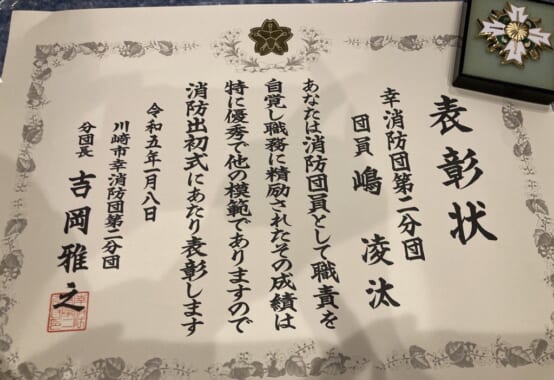 表彰状
幸消防団第二分団
団員 嶋 凌汰
あなたは消防団員として職責を
自覚し職務に精励されたその成績は
特に優秀で他の模範でありますので
消防出初式にあたり表彰します
令和五年一月八日
川崎市幸消防団第二分団
分団長 吉岡雅之